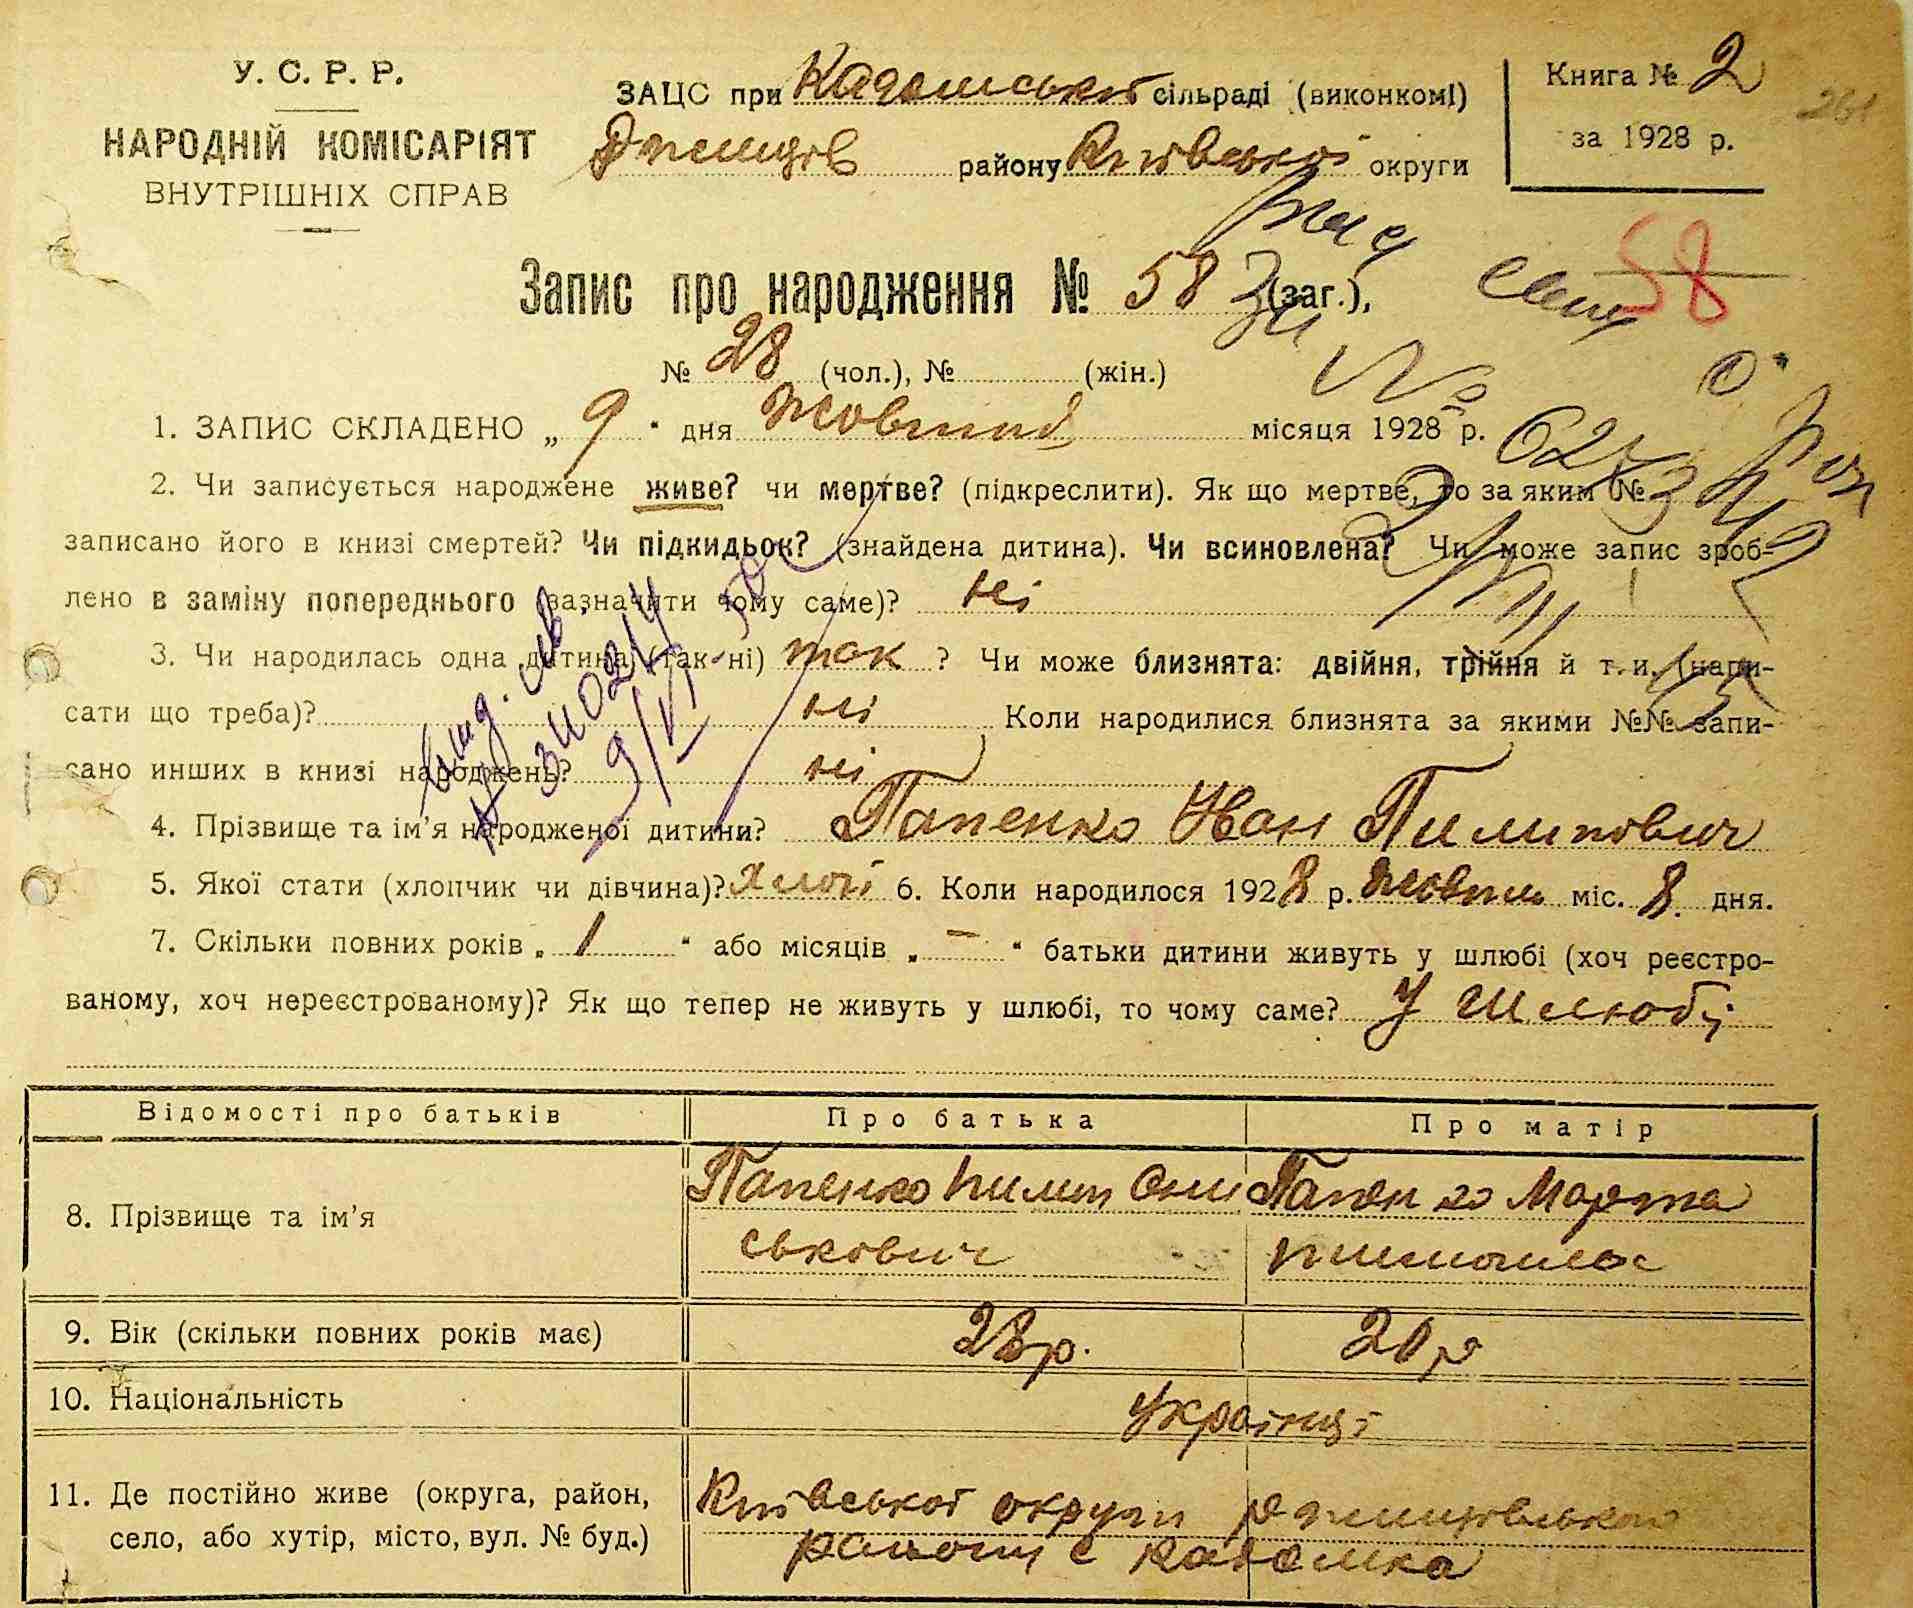 У. С. Р. Р.
НАРОДНІЙ КОМІСАРІЯТ
ВНУТРІШНІХ СПРАВ
ЗАЦС при сільраді (виконкомі)
району Київської округи
Книга № 2
за 1928 р.
261
58
Запис про народження № 58 (заг.),
№ 28 (чол.), № (жін.)
1. ЗАПИС СКЛАДЕНО „ 9 “ дня Жовтня місяця 1928 р.
2. Чи записується народжене живе? чи мертве? (підкреслити). Як що мертве, то за яким №
записано його в книзі смертей? Чи підкидьок? (знайдена дитина). Чи всиновлена? Чи може запис зроб-
лено в заміну попереднього (зазначити чому саме)? ні
3. Чи народилась одна дитина (так-ні) так ? Чи може близнята: двійня, трійня й т. и. (напи-
сати що треба)? ні Коли народилися близнята за якими №№ запи-
сано инших в книзі народжень? ні
4. Прізвище та ім’я народженої дитини? Папенко Иван Пилипович
5. Якої стати (хлопчик чи дівчина)? хлоп 6. Коли народилося 1928 р. Жовтн міс. 8. дня.
7. Скільки повних років „ 1 “ або місяців „ – “ батьки дитини живуть у шлюбі (хоч реєстро-
ваному, хоч нереєстрованому)? Як що тепер не живуть у шлюбі, то чому саме? У Шлюбі
Відомості про батьків Про батька Про матір
8. Прізвище та ім’я
Папенко Пилип Они
ськович
Папенко Марта
9. Вік (скільки повних років має) 28 р. 20 р
10. Національність Українці
11. Де постійно живе (округа, район,
село, або хутір, місто, вул. № буд.)
Київської округи ржищівського
району с